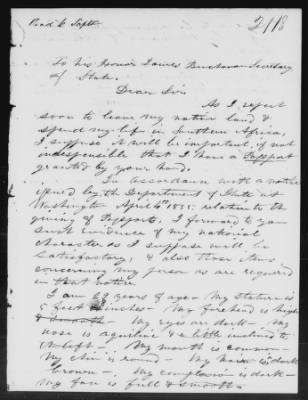 Recd 6 Sept.
2118
To His Honor James Buchanan Secretary
of State.
Dear Sir
As I expect
soon to leave my native land &
spend my life in Southern Africa,
I suppose it will be important, if not
indispensible that I have a Passport
granted by your hand.
In accordance with a notice
issued by the Department of State at
Washington April 4th relative to the
giving of Passports, I forward to you
such evidence of my national
character as I suppose will be
satisfactory, & also those items
concerning my person as are required
in that notice.
I am 29 years of age - My stature is
5 feet inches - My forehead is high
& smooth - My eyes are dark - My
nose is aquiline & a little inclined to
the left - My mouth is common -
My chin is round - My hair is dark
brown - My complexion is dark -
My face is full & smooth -